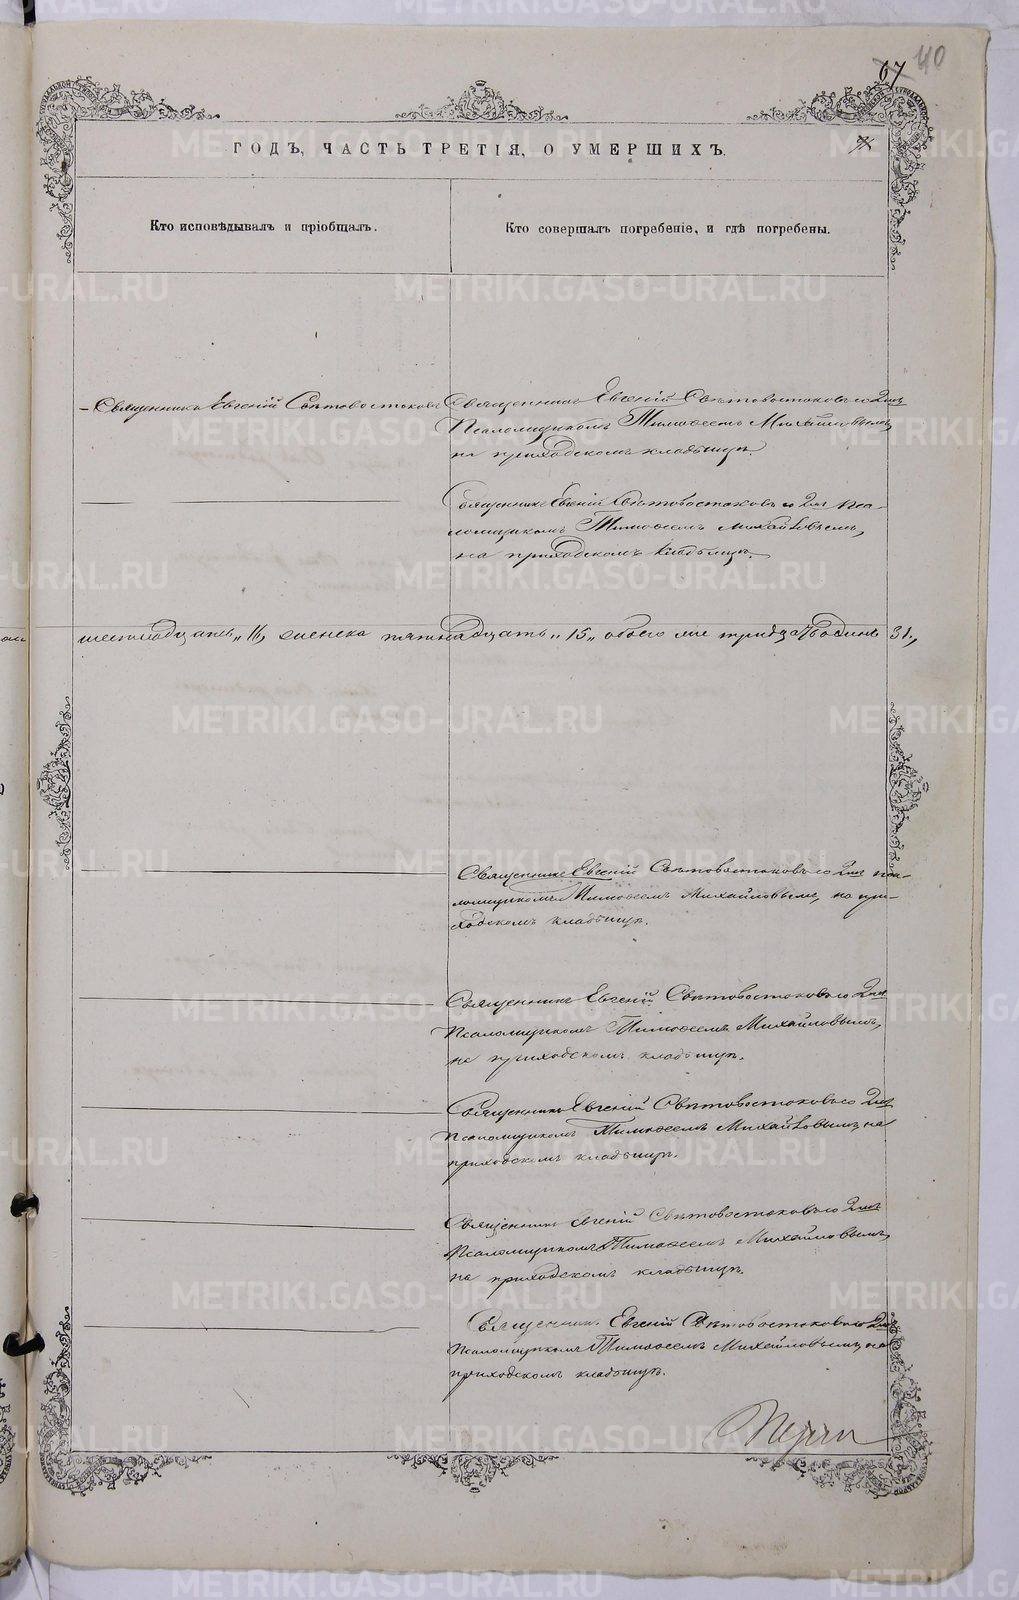 67 40
ГОДЪ, ЧАСТЬ ТРЕТІЯ, О УМЕРШИХЪ.
Кто исповѣдывалъ и пріобщалъ.
Кто совершалъ погребеніе, и гдѣ погребены.
Священникъ Евгеній Свѣтовостоковъ
Священникъ Евгеній Свѣтовостоковъ со
Псаломщикомъ Тимофеемъ Михайловымъ,
на приходскомъ кладбищѣ.
Священникъ Евгеній Свѣтовостоковъ со Пса-
ломщикомъ Тимофеемъ Михайловымъ,
на приходскомъ кладбищѣ.
шестнадцать „16„ женска пятнадцать „15„ обоего же тридцать одинъ 31.,
Священникъ Евгеній Свѣтовостоковъ со пса-
ломщикомъ Тимофеемъ Михайловымъ, на при-
ходскомъ кладбищѣ.
Священникъ Евгеній Свѣтовостоковъ со
Псаломщикомъ Тимофеемъ Михайловымъ,
на приходскомъ кладбищѣ.
Священникъ Евгеній Свѣтовостоковъ со
Псаломщикомъ Тимофеемъ Михайловымъ, на
приходскомъ кладбищѣ.
Священникъ Евгеній Свѣтовостоковъ со
Псаломщикомъ Тимофеемъ Михайловымъ,
на приходскомъ кладбищѣ.
Священникъ Евгеній Свѣтовостоковъ со
Псаломщикомъ Тимофеемъ Михайловымъ, на
приходскомъ кладбищѣ.
METRIKI.GASO-URAL.RU